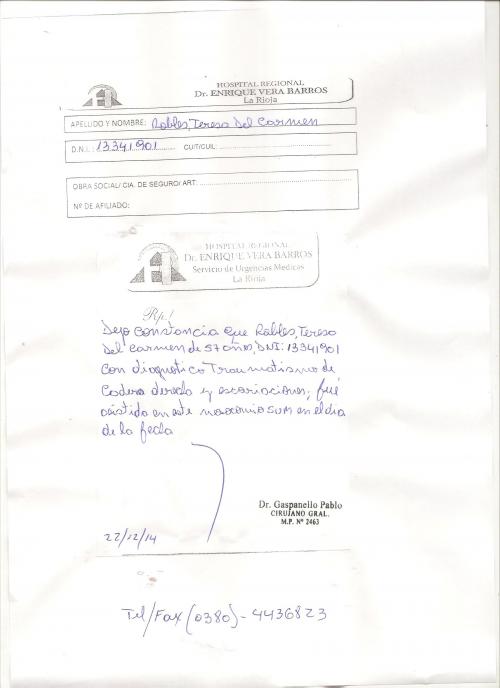 HOSPITAL REGIONAL
Dr. ENRIQUE VERA BARROS
La Rioja
APELLIDO Y NOMBRE: Robles, Teresa Del Carmen
D.N.I.: 13341901 CUIT/CUIL:
OBRA SOCIAL/ CIA. DE SEGURO/ ART:
Nº DE AFILIADO:
HOSPITAL REGIONAL
Dr. ENRIQUE VERA BARROS
Servicio de Urgencias Medicas
La Rioja
Rp/
Dejo constancia que Robles, Teresa
Del Carmen de 57 años, DNI: 13341901
con diagnostico Traumatismo de
Cadera derecha y escoriaciones, fué
asistida en este nosocomio SUM en el dia
de la fecha
Dr. Gaspanello Pablo
CIRUJANO GRAL.
M.P. Nº 2463
22/12/14
Tel/Fax (0380)-4436823